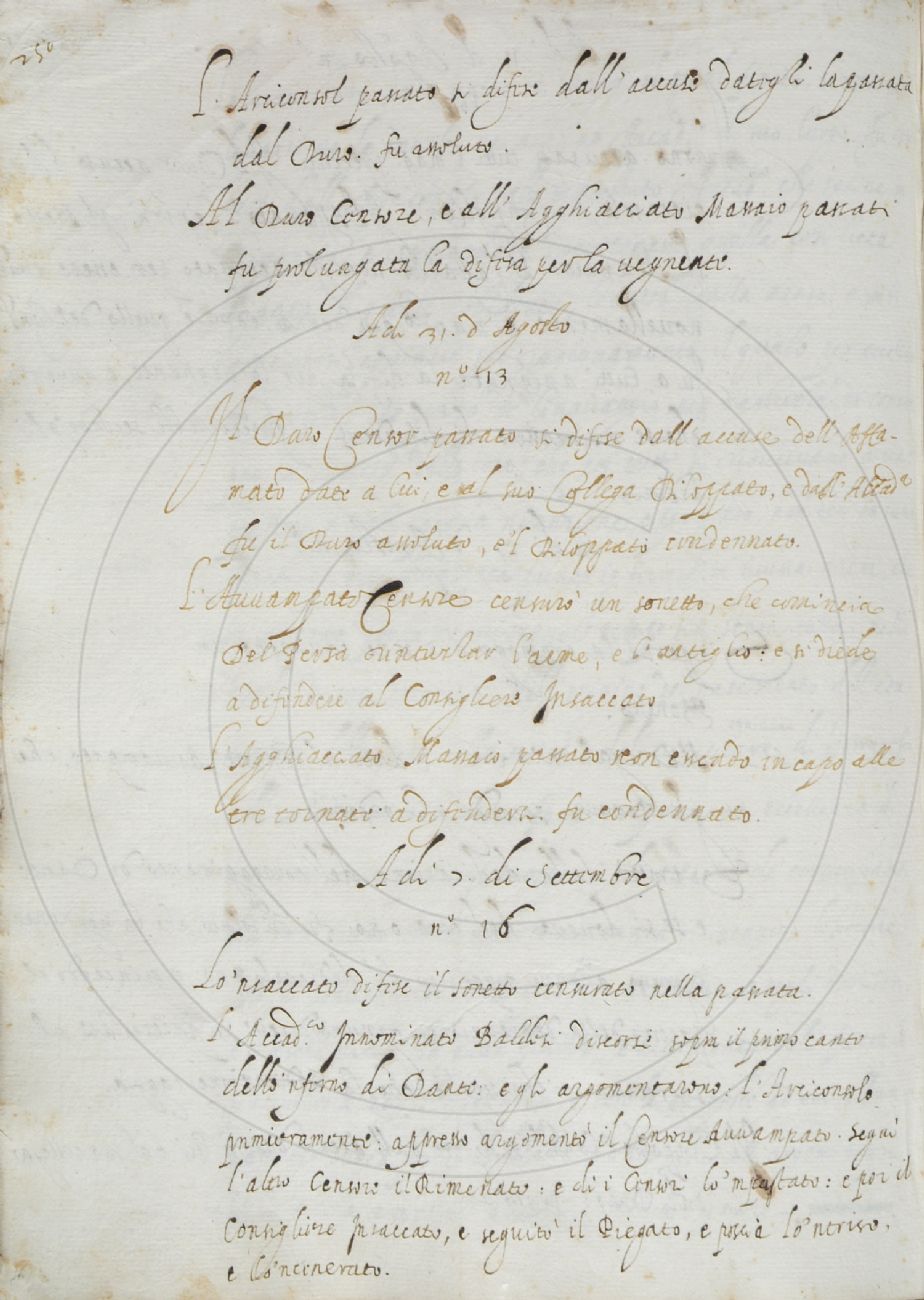 250
L'Arciconsol passato si difese dall'accuse dategli la passata
dal Duro. fu assoluto.
Al Duro Censore, e all'Agghiacciato Massaio passati
fu prolungata la difesa per la vegnente.
Adi 31. d'Agosto
n.º 13
Il Duro Censor passato si difese dall'accuse dell'Affa-
mato date a lui, e al suo Collega Riloppato, e dall'Accad.ª
fu il Duro assoluto, e'l Riloppato condennato.
L'Avvampato Censore censurò un sonetto, che comincia
Del Persa l'arme, e l'artiglio: e si diede
a difendere al Consigliere Insaccato
L'Agghiacciato Massaio passato non essendo in capo alle
tre tornate a difendersi fu condennato.
Adi 7. di Settembre
n.º 16
Lo'nsaccato difese il sonetto censurato nella passata.
L'Accad.co Innominato Baldesi discorse sopra il primo canto
dello'nferno di Dante: e gli argomentarono: l'Arciconsolo
primieramente: appresso argomentò il Censore Avvampato. Seguì
l'altro Censore il Rimenato: e di i Censori lo'mpastato: e poi il
Consigliere Insaccato, e seguitò il Piegato, e poscia lo'ntriso.
e lo'ncenerato.